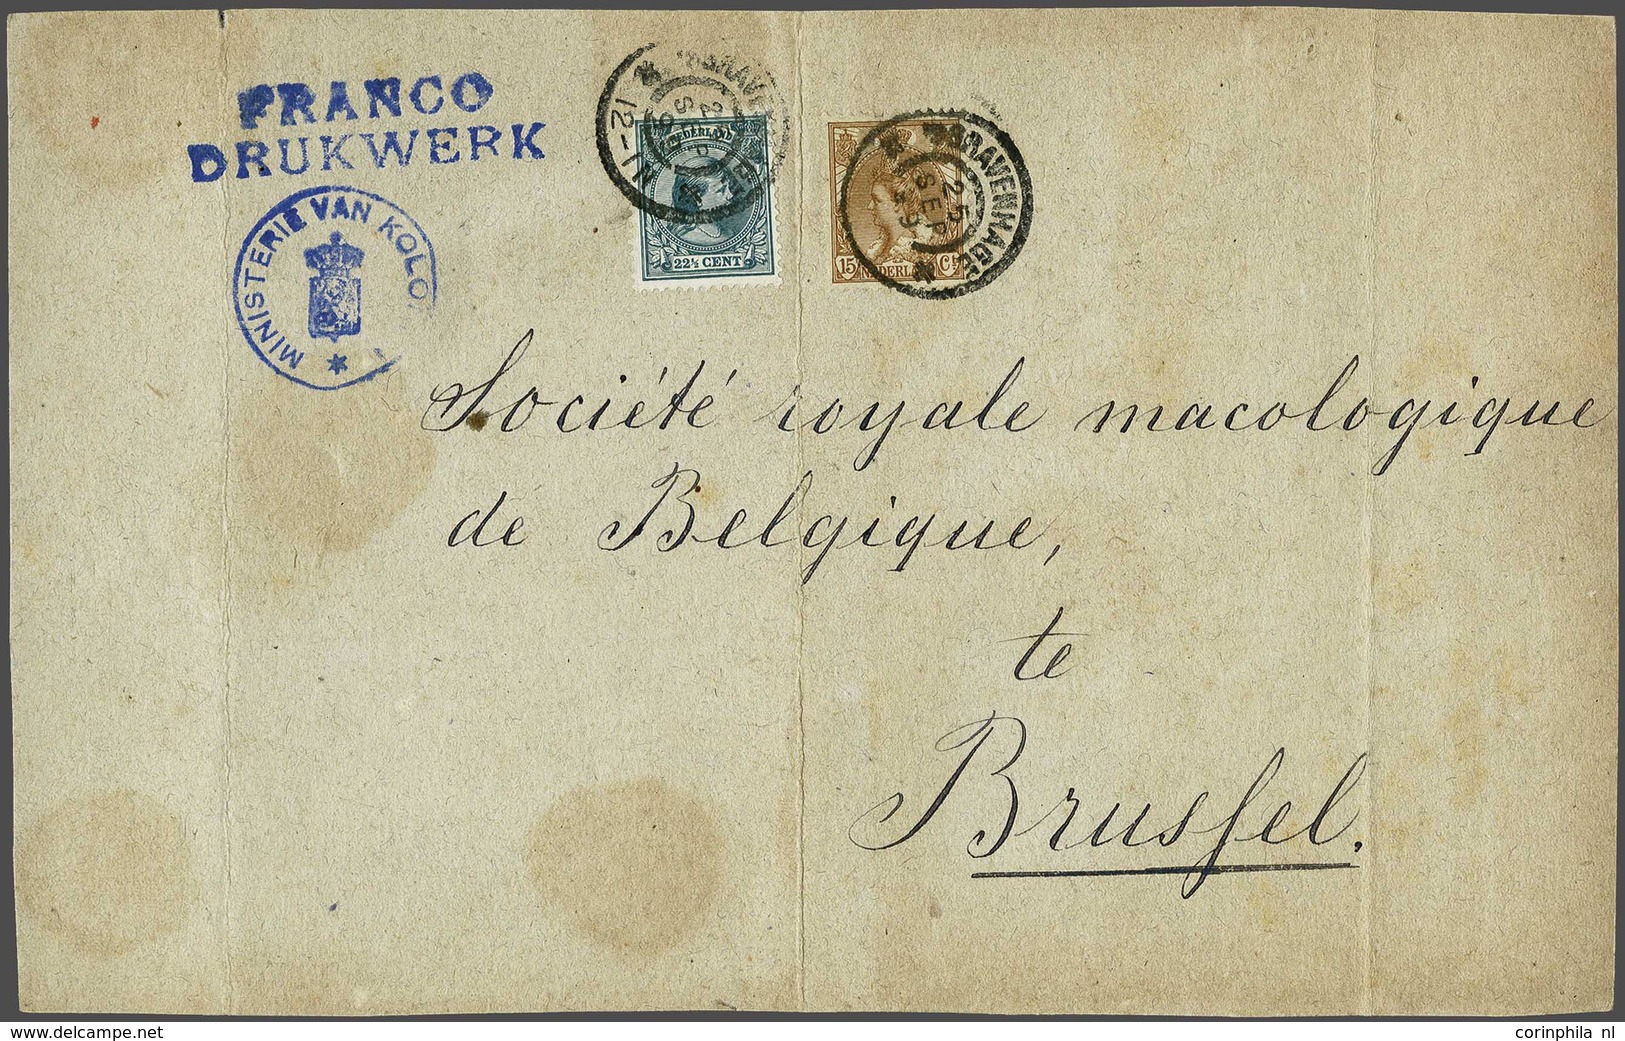 FRANCO
DRUKWERK
MINISTERIE VAN KOLO
NEDERLAND
22½ CENT
15 NEDERLAND Ct
'SGRAVENHAGE
25
SEP
12-1 N
Société royale macologique
de Belgique,
te
Brussel.
www.delcampe.net
corinphila nl